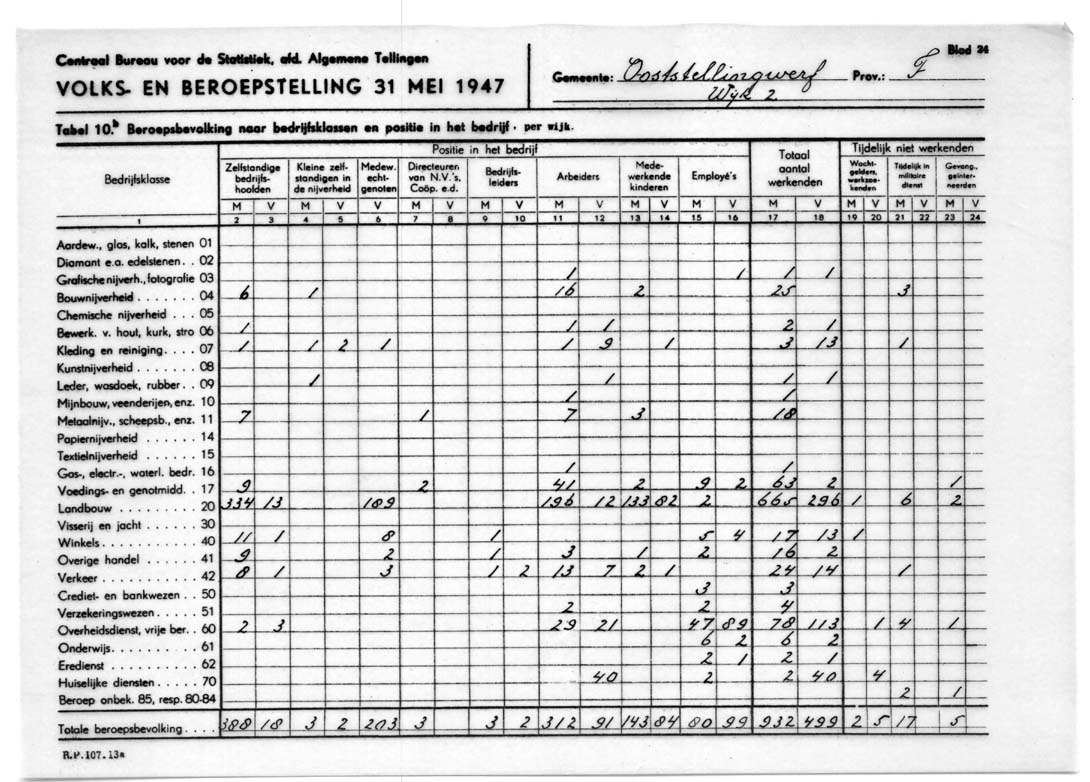 Blad 24
Centraal Bureau voor de Statistiek, afd. Algemene Tellingen
VOLKS- EN BEROEPSTELLING 31 MEI 1947
Gemeente: Ooststellingwerf Prov.: F
Wijk 2.
Tabel 10.b Beroepsbevolking naar bedrijfsklassen en positie in het bedrijf, per wijk.
Bedrijfsklasse
Positie in het bedrijf
Totaal aantal werkenden
Tijdelijk niet werkenden
Zelfstandige bedrijfs- hoofden
Kleine zelf- standigen in de nijverheid
Medew. echt- genoten
Directeuren van N.V.'s, Coöp. e.d.
Bedrijfs- leiders
Arbeiders
Mede- werkende kinderen
Employé's
Wacht- gelders, werkzoe- kenden
Tijdelijk in militaire dienst
Gevang., geinter- neerden
M V M V V M V M V M V M V M V M V M V M V M V
1 2 3 4 5 6 7 8 9 10 11 12 13 14 15 16 17 18 19 20 21 22 23 24
Aardew., glas, kalk, stenen 01
Diamant e.a. edelstenen. . 02
Grafische nijverh., fotografie 03 1 1 1 1
Bouwnijverheid . . . . . . . 04 6 1 16 2 25 3
Chemische nijverheid . . . 05
Bewerk. v. hout, kurk, stro 06 1 1 1 2 1
Kleding en reiniging. . . . 07 1 1 2 1 1 9 1 3 13 1
Kunstnijverheid . . . . . . . 08
Leder, wasdoek, rubber. . 09 1 1 1 1
Mijnbouw, veenderijen, enz. 10 1 1
Metaalnijv., scheepsb., enz. 11 7 1 7 3 18
Papiernijverheid . . . . . . 14
Textielnijverheid . . . . . . 15
Gas-, electr.-, waterl. bedr. 16 1 1
Voedings- en genotmidd. . 17 9 2 41 2 9 2 63 2 1
Landbouw . . . . . . . . . . 20 334 13 189 196 12 133 82 2 665 296 1 6 2
Visserij en jacht . . . . . . 30
Winkels . . . . . . . . . . . 40 11 1 8 1 5 4 17 13 1
Overige handel . . . . . . . 41 9 2 1 3 1 2 16 2
Verkeer . . . . . . . . . . . 42 8 1 3 1 2 13 7 2 1 24 14 1
Crediet- en bankwezen . . 50 3 3
Verzekeringswezen. . . . . 51 2 2 4
Overheidsdienst, vrije ber. . 60 2 3 29 21 47 89 78 113 1 4 1
Onderwijs. . . . . . . . . . 61 6 2 6 2
Eredienst . . . . . . . . . . 62 2 1 2 1
Huiselijke diensten . . . . . 70 40 2 2 40 4
Beroep onbek. 85, resp. 80-84 2 1
Totale beroepsbevolking . . . . 388 18 3 2 203 3 3 2 312 91 143 84 80 99 932 499 2 5 17 5
R.P.107.13a